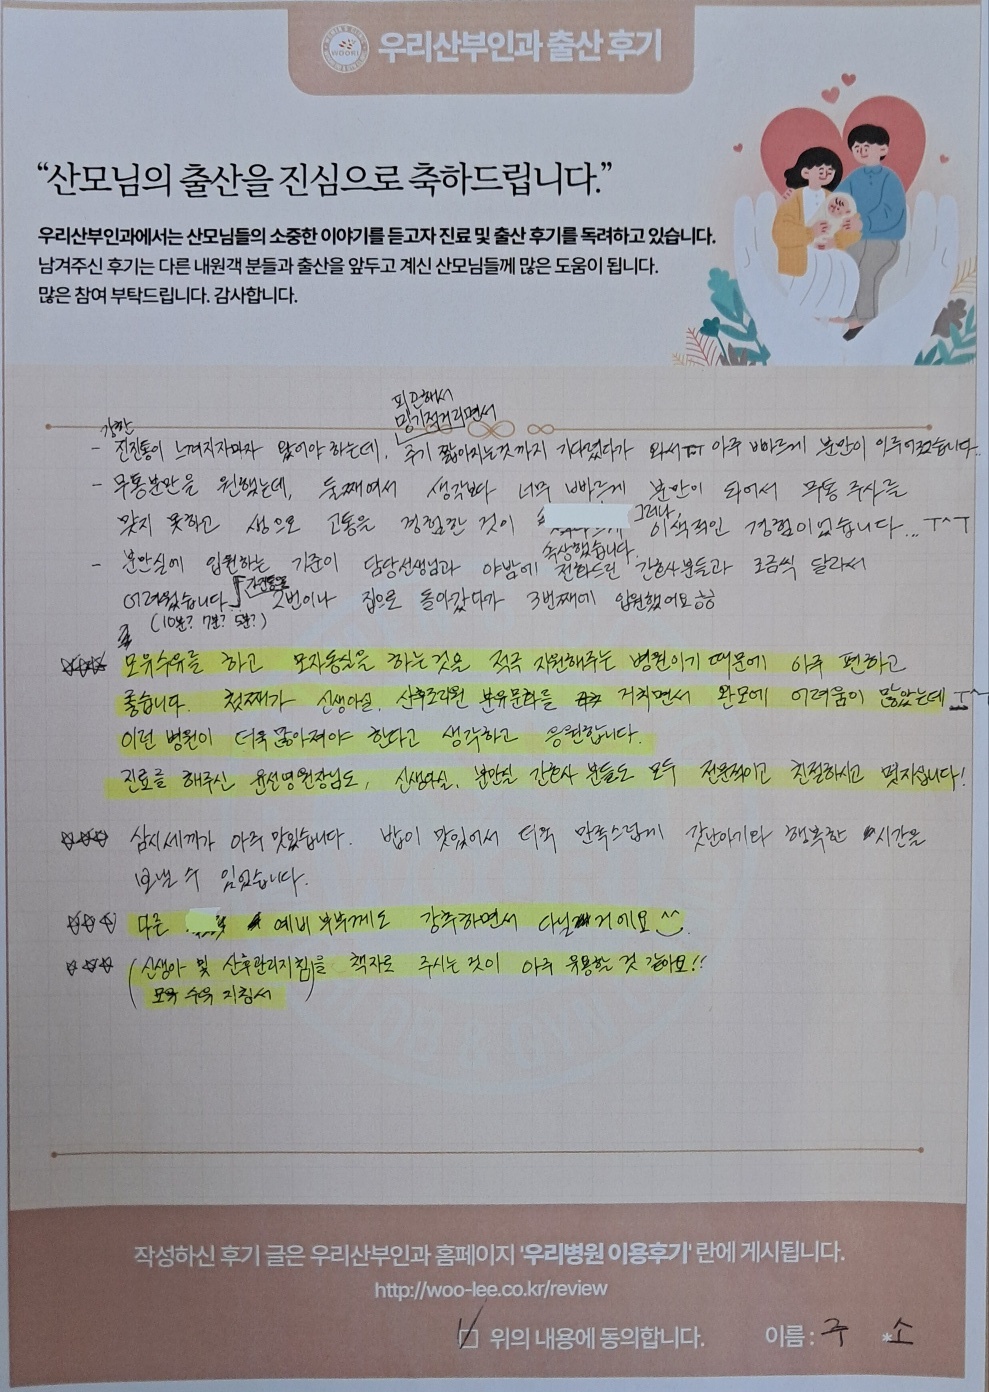 우리산부인과 출산 후기
“산모님의 출산을 진심으로 축하드립니다.”
우리산부인과에서는 산모님들의 소중한 이야기를 듣고자 진료 및 출산 후기를 독려하고 있습니다.
남겨주신 후기는 다른 내원객 분들과 출산을 앞두고 계신 산모님들께 많은 도움이 됩니다.
많은 참여 부탁드립니다. 감사합니다.
피곤해서
강한 밍기적거리면서
- 진진통이 느껴지자마자 왔어야 하는데, 주기 짧아지는것까지 기다렸다가 와서 아주 빠르게 분만이 이루어졌습니다.
- 무통분만을 원했는데, 둘째여서 생각보다 너무 빠르게 분만이 되어서 무통 주사를
맞지 못하고 생으로 고통을 경험한 것이 그러나, 이색적인 경험이었습니다... ㅜ^ㅜ
속상했습니다.
- 분만실에 입원하는 기준이 담당선생님과 야밤에 전화드린 간호사분들과 조금씩 달라서
어려웠습니다. 2번이나 집으로 돌아갔다가 3번째에 입원했어요 ㅎㅎ
(10분? 7분? 5분?)
모유수유를 하고 모자동실을 하는것은 적극 지원해주는 병원이기 때문에 아주 편하고
좋습니다. 첫째가 신생아실, 산후조리원 분유문화를 거치면서 완모에 어려움이 많았는데
이런 병원이 더욱 많아져야 한다고 생각하고 응원합니다.
진료를 해주신 윤선영원장님도, 신생아실, 분만실 간호사 분들도 모두 전문적이고 친절하시고 멋지십니다!
삼시세끼가 아주 맛있습니다. 밥이 맛있어서 더욱 만족스럽게 갓난아기와 행복한 시간을
보낼 수 있었습니다.
다른 예비 부부께도 강추하면서 다닐거에요 ^^
(신생아 및 산후관리지침)을 책자로 주시는 것이 아주 유용한 것 같아요!!
모유 수유 지침서
작성하신 후기 글은 우리산부인과 홈페이지 '우리병원 이용후기' 란에 게시됩니다.
http://woo-lee.co.kr/review
위의 내용에 동의합니다. 이름 : 주 * 소